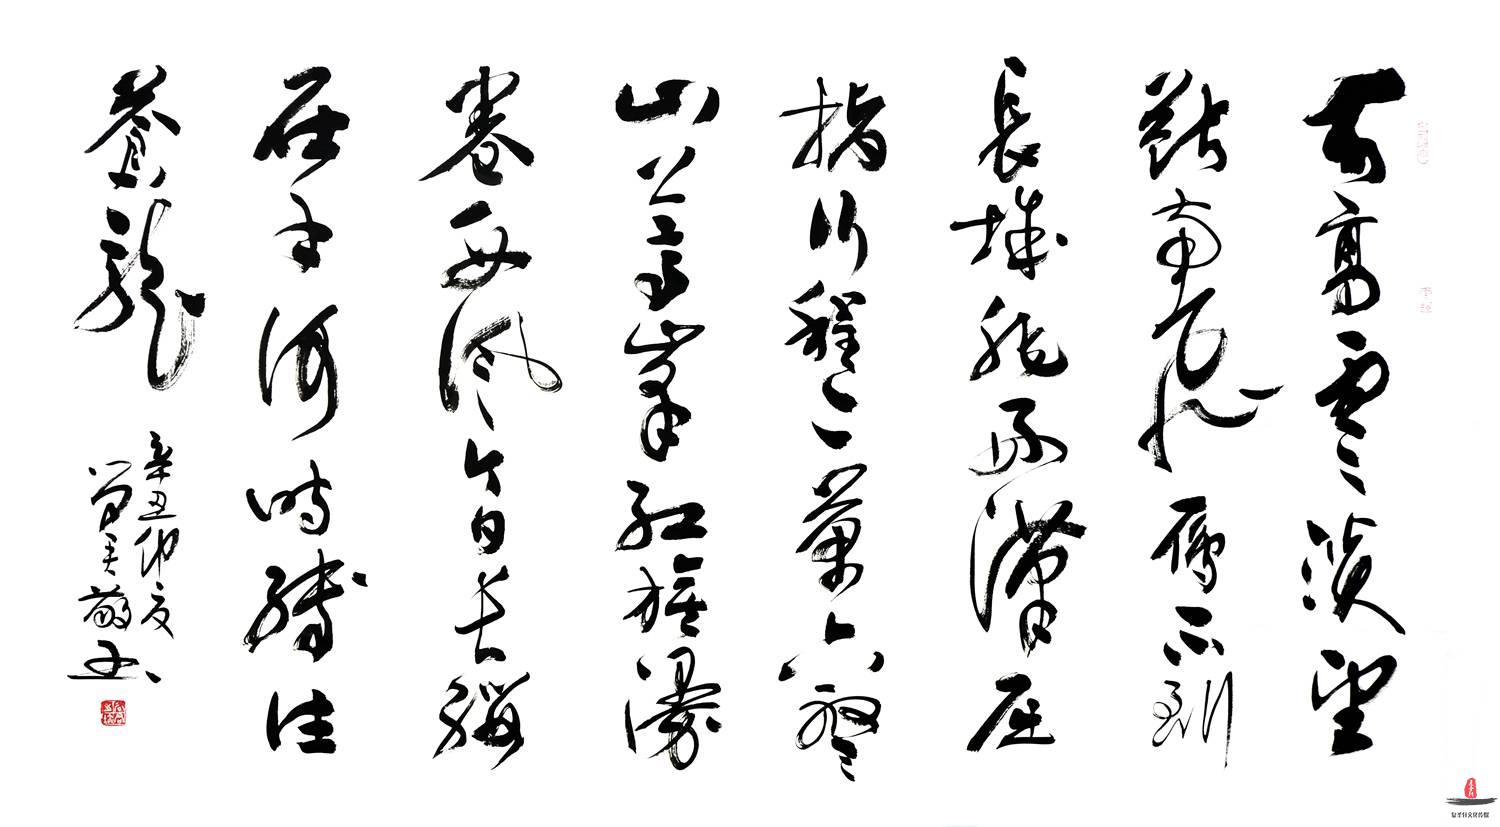 天高雲淡望
斷南飛雁不到
長城非好漢屈
指行程二萬六盤
山上高峰紅旗漫
卷西風今日長纓
在手何時縛住
蒼龍
辛丑仲夏
敬书
文化传媒